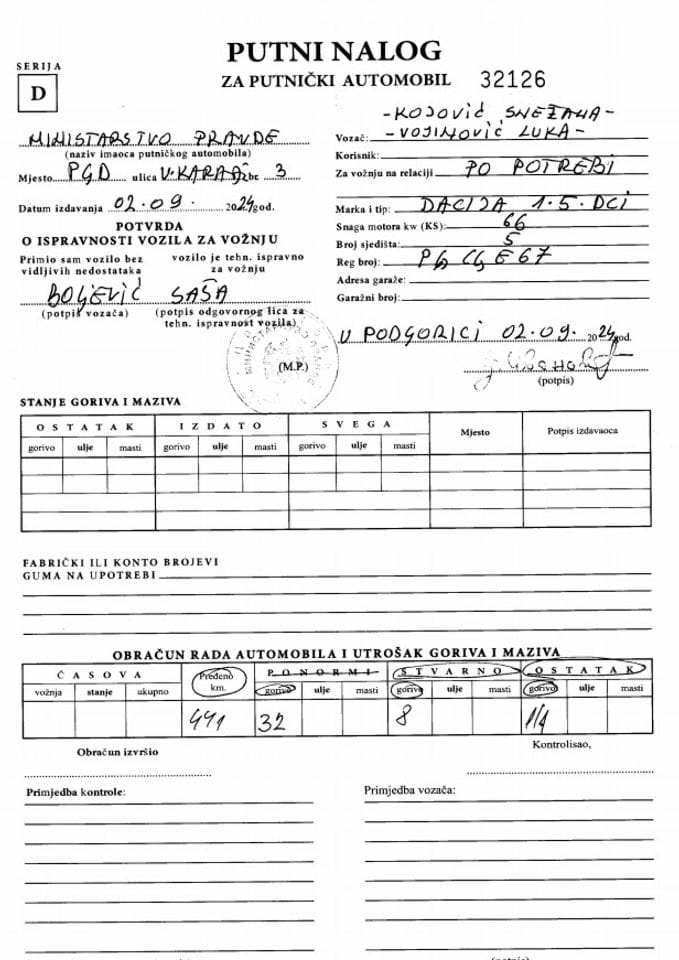 PUTNI NALOG
ZA PUTNIČKI AUTOMOBIL 32126
SERIJA
D
MINISTARSTVO PRAVDE
(naziv imaoca putničkog automobila)
Mjesto PGD ulica V.KARAĐ br 3
Datum izdavanja 02.09. 2024 god.
POTVRDA
O ISPRAVNOSTI VOZILA ZA VOŽNJU
Primio sam vozilo bez vidljivih nedostataka
vozilo je tehn. ispravno za vožnju
BOLJEVIĆ SAŠA
(potpis vozača) (potpis odgovornog lica za tehn. ispravnost vozila)
-KOJOVIĆ SNEŽANA-
Vozač: -VOJINOVIĆ LUKA-
Korisnik:
Za vožnju na relaciji PO POTREBI
Marka i tip: DACIJA 1.5. DCI
Snaga motora kw (KS): 66
Broj sjedišta: 5
Reg broj: PG CG E67
Adresa garaže:
Garažni broj:
U PODGORICI 02.09. 2024 god.
(M.P.)
(potpis)
STANJE GORIVA I MAZIVA
OSTATAK IZDATO SVEGA Mjesto Potpis izdavaoca
gorivo ulje masti gorivo ulje masti gorivo ulje masti
FABRIČKI ILI KONTO BROJEVI
GUMA NA UPOTREBI
OBRAČUN RADA AUTOMOBILA I UTROŠAK GORIVA I MAZIVA
ČASOVA Pređeno km. PO NORMI STVARNO OSTATAK
vožnja stanje ukupno gorivo ulje masti gorivo ulje masti gorivo ulje masti
441 32 8 1/4
Obračun izvršio Kontrolisao,
Primjedba kontrole: Primjedba vozača:
(potpis)